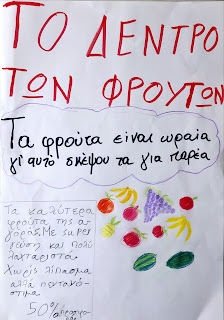 ΤΟ ΔΕΝΤΡΟ
ΤΩΝ ΦΡΟΥΤΩΝ
Τα φρούτα είναι ωραία
γι' αυτό σκέψου τα για παρέα
Τα καλύτερα
φρούτα της α-
γοράς. Με super
γεύση και πολύ
λαχταριστά
Χωρίς λίπασμα
αλλά πεντακό-
στιμα
50%